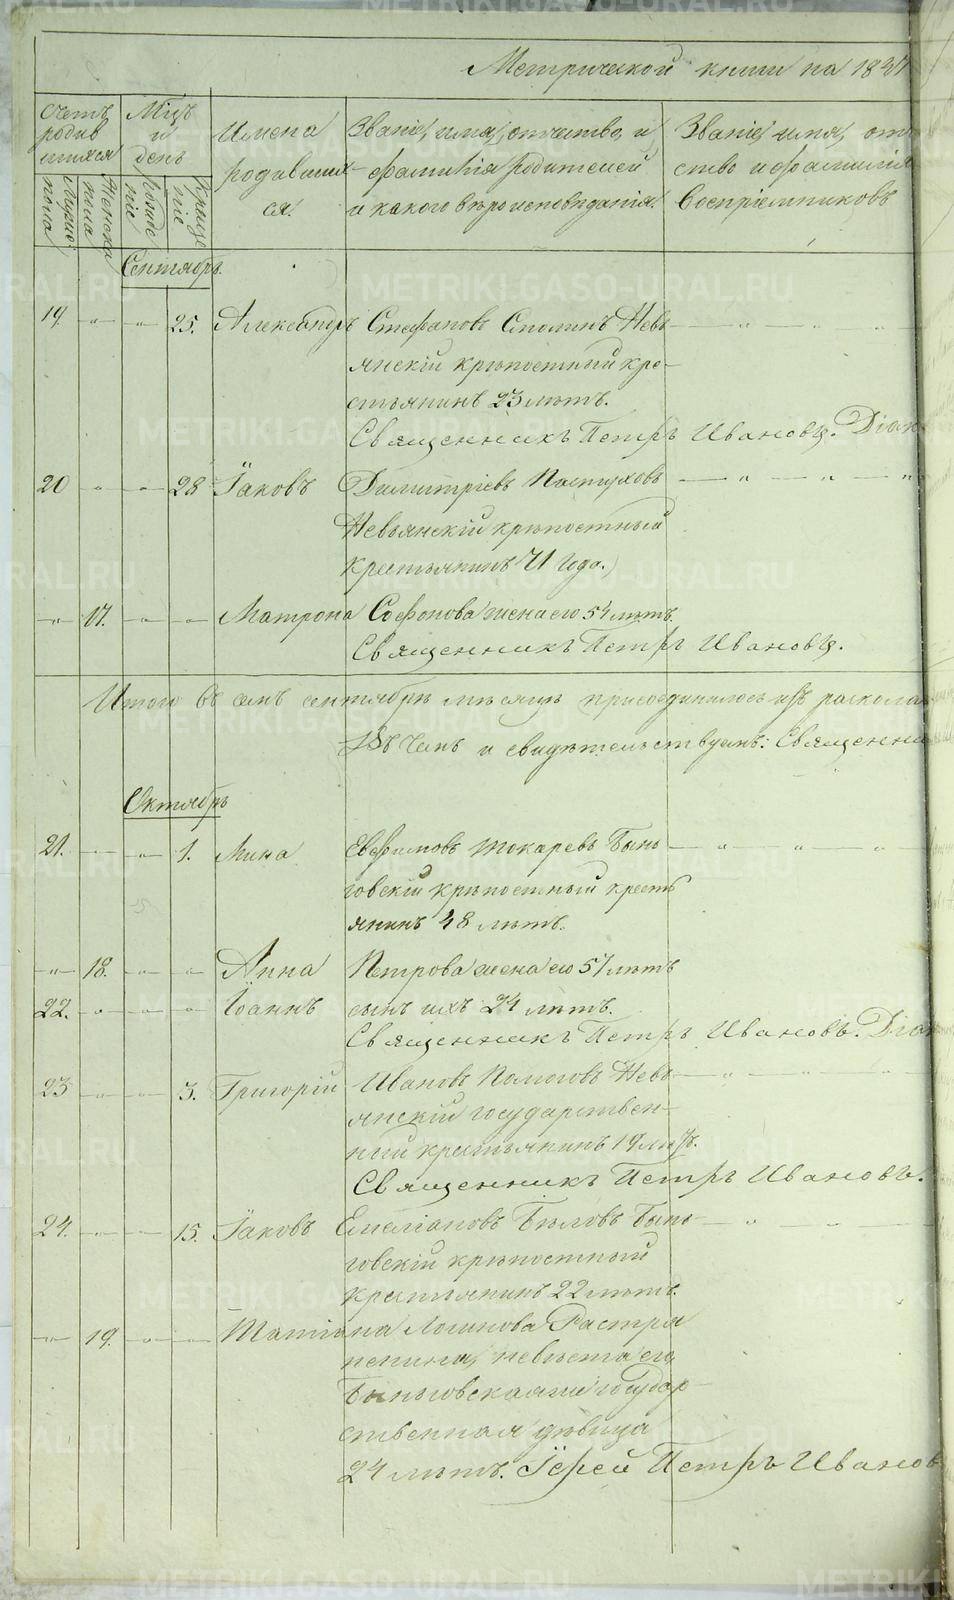 Метрической книги на 1837
Счетъ родив шихся
Мцъ и день
Имена родивших- ся.
Званіе, имя, отчество, и фамилія родителей и какого вѣроисповѣданія.
Званіе, имя, от ство и фамилія Воспріемниковъ
Мужес пола
Женска пола
рожде ніе
Креще ніе
Сентябрь.
19. -„- -„- 25. Александръ Стефановъ Смолинъ Невь -„- „ „
янскій крѣпостный кре-
стьянинъ 23 лѣтъ.
Священникъ Петръ Ивановъ. Діак
20 „ -„- 28 Іаковъ Димитріевъ Пастуховъ -„- „ „
Невьянскій крѣпостный
крестьянинъ 71 года.
-„- 17. -„- -„- Матрона Софонова жена его 54 лѣтъ.
Священникъ Петръ Ивановъ.
Итого въ семъ сентябрѣ мѣсяцѣ присоединилось изъ раскола
въ чемъ и свидѣтельствуемъ: Священни
Октябрь
21. -„- -„- 1. Мина Евфимовъ Токаревъ Бынь -„- „ „
говскій крѣпостный кресть
янинъ 48 лѣтъ.
-„- 18. -„- -„- Анна Петрова жена его 51 лѣтъ
22. -„- -„- -„- Іоаннъ сынъ ихъ 24 лѣтъ.
Священникъ Петръ Ивановъ. Діак
23 -„- -„- 3. Григорій Ивановъ Невь -„- „ „
янскій государствен-
ный крестьянинъ 19 лѣтъ.
Священникъ Петръ Ивановъ.
24. -„- -„- 15. Іаковъ Емеліановъ Бѣловъ Бынь -„-
говскій крѣпостный
крестьянинъ 22 лѣтъ.
-„- 19. -„- -„- Татіана Логинова Растря
пенина, невѣста его,
Быньговская же государ-
ственная дѣвица
24 лѣтъ. Іерей Петръ Иванов
METRIKI.GASO-URAL.RU